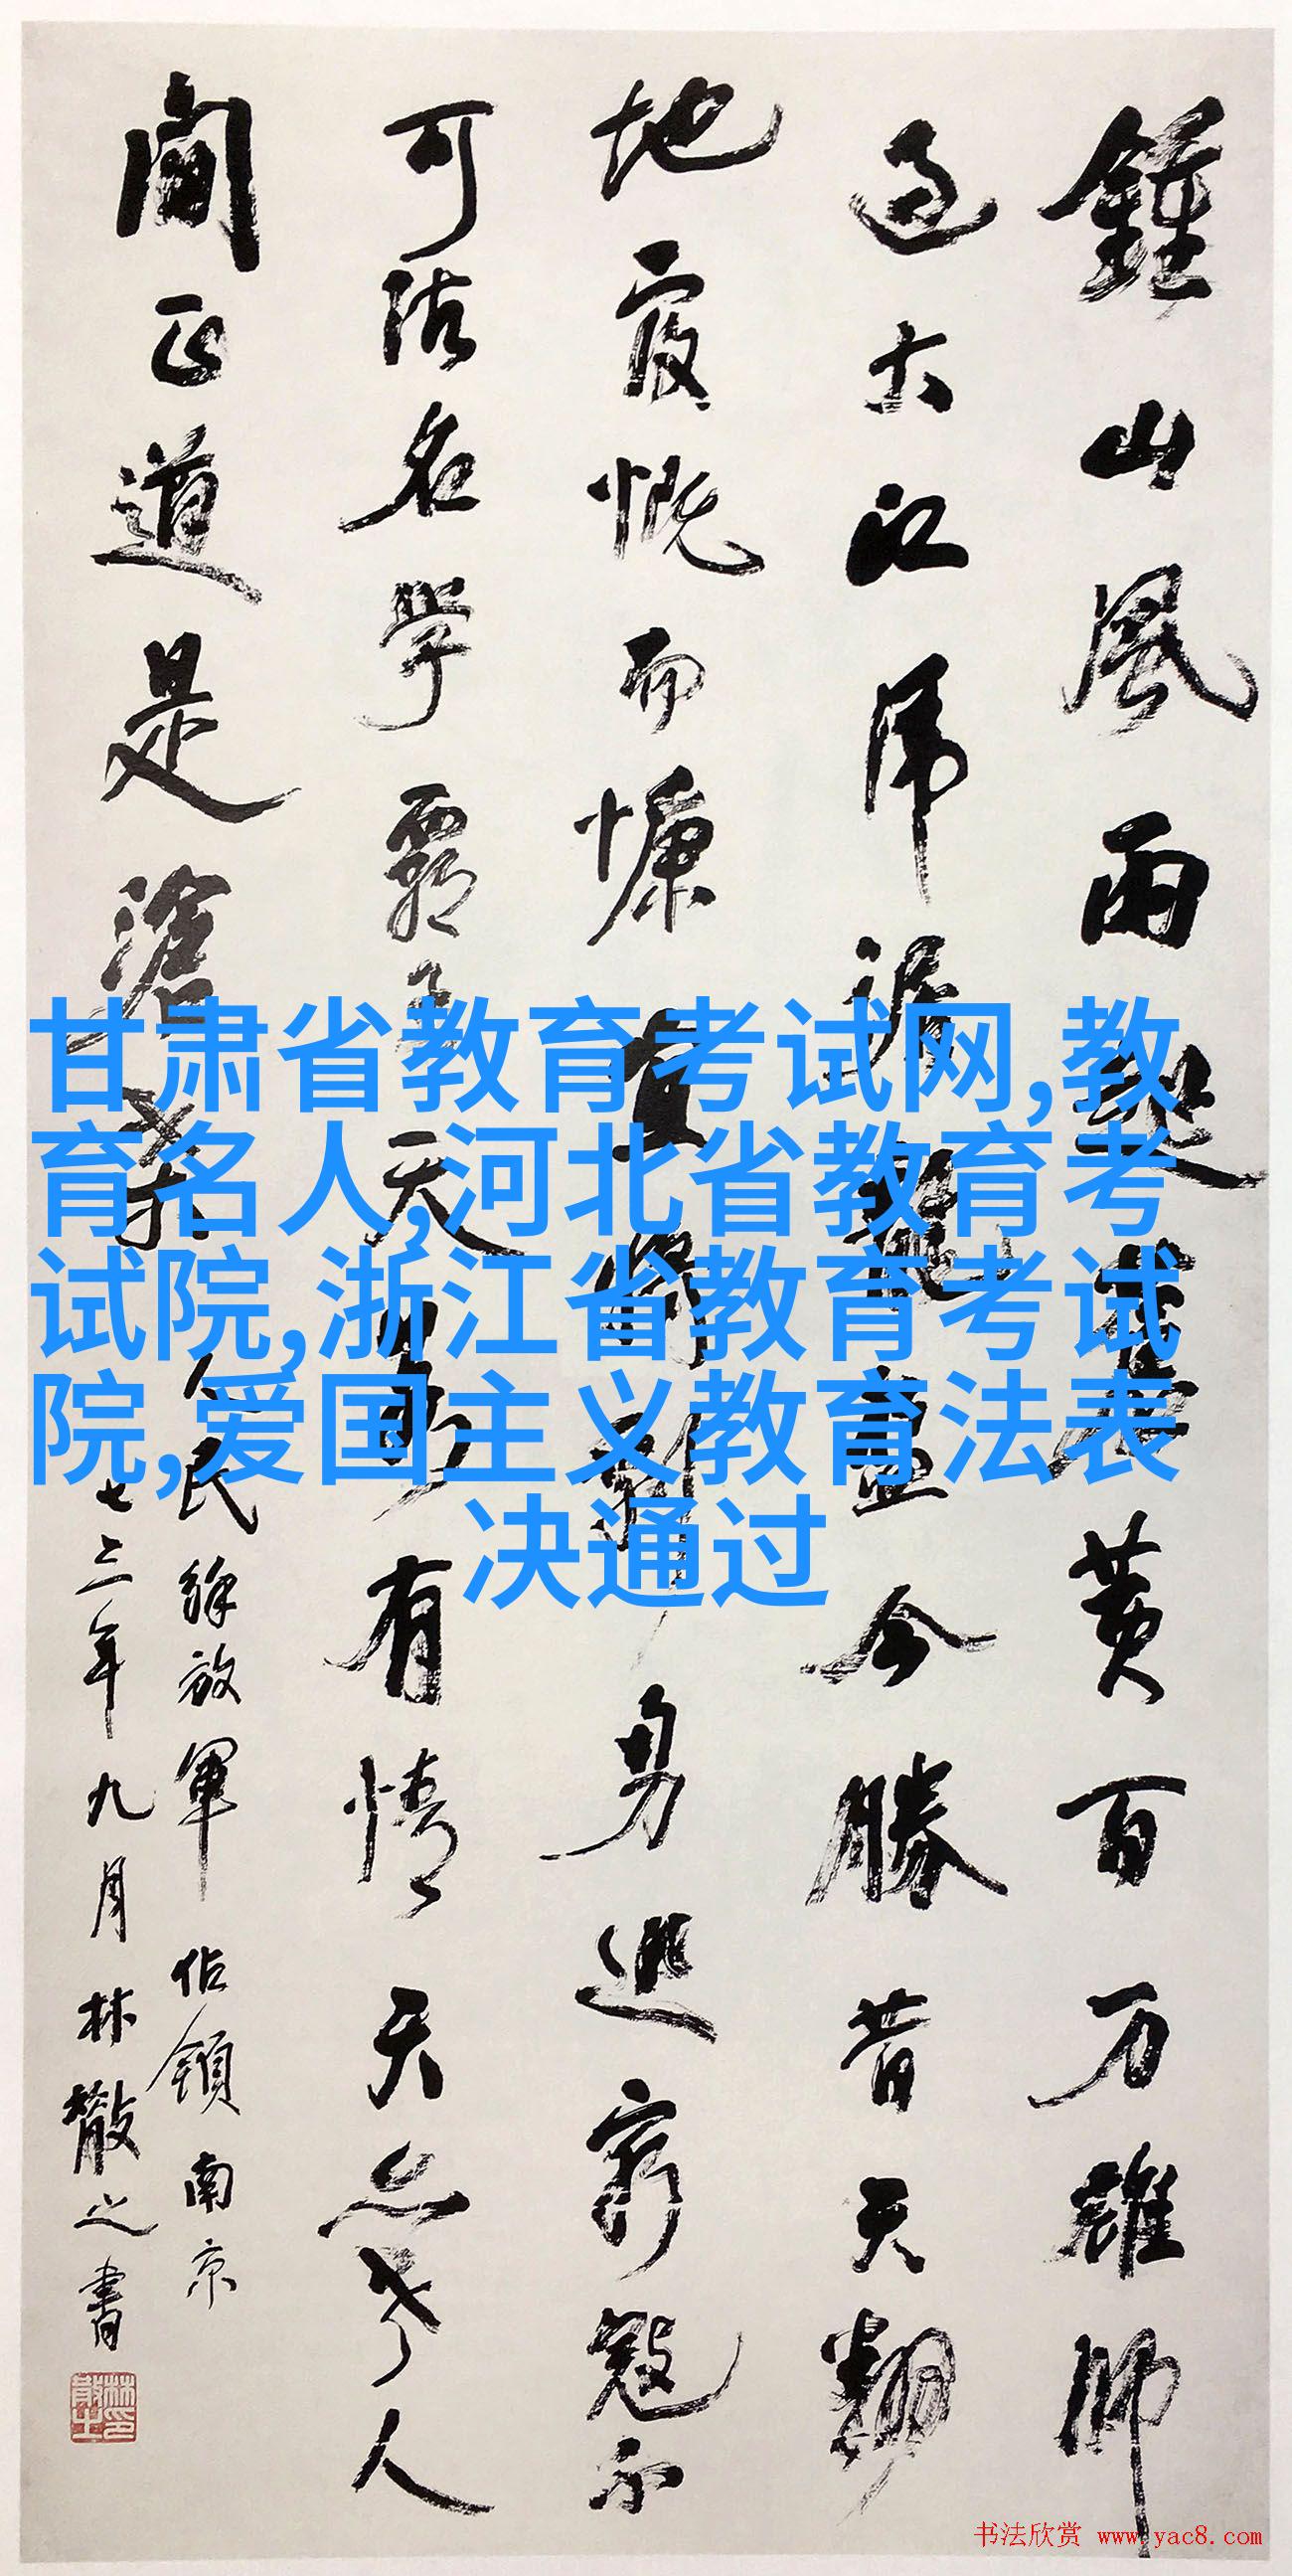 鍾山風雨起蒼黃百万雄师
过大江虎踞龍盤今勝昔天翻
地覆慨而慷宜將剩勇追窮寇不
可沽名學霸王天若有情天亦老人
間正道是滄桑
人民解放軍佔領南京
七三年九月林散之書
林散之印
甘肃省教育考试网,教
育名人,河北省教育考
试院,浙江省教育考试
院,爱国主义教育法表
决通过
书法欣赏 www.yac8.com